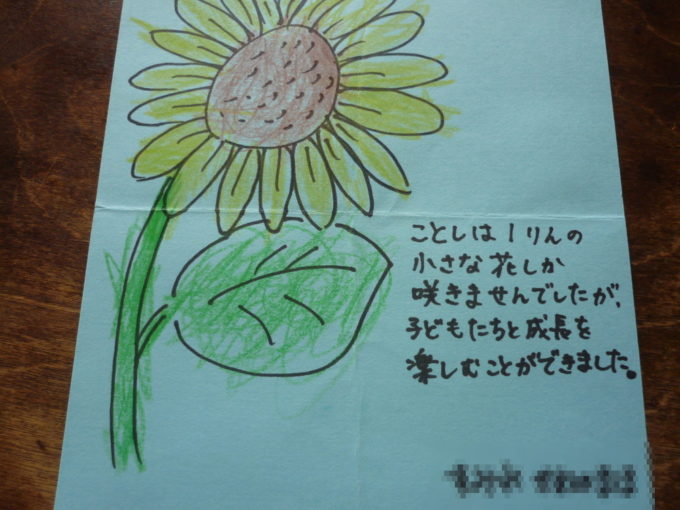 ことしは1りんの
小さな花しか
咲きませんでしたが、
子どもたちと成長を
楽しむことができました。